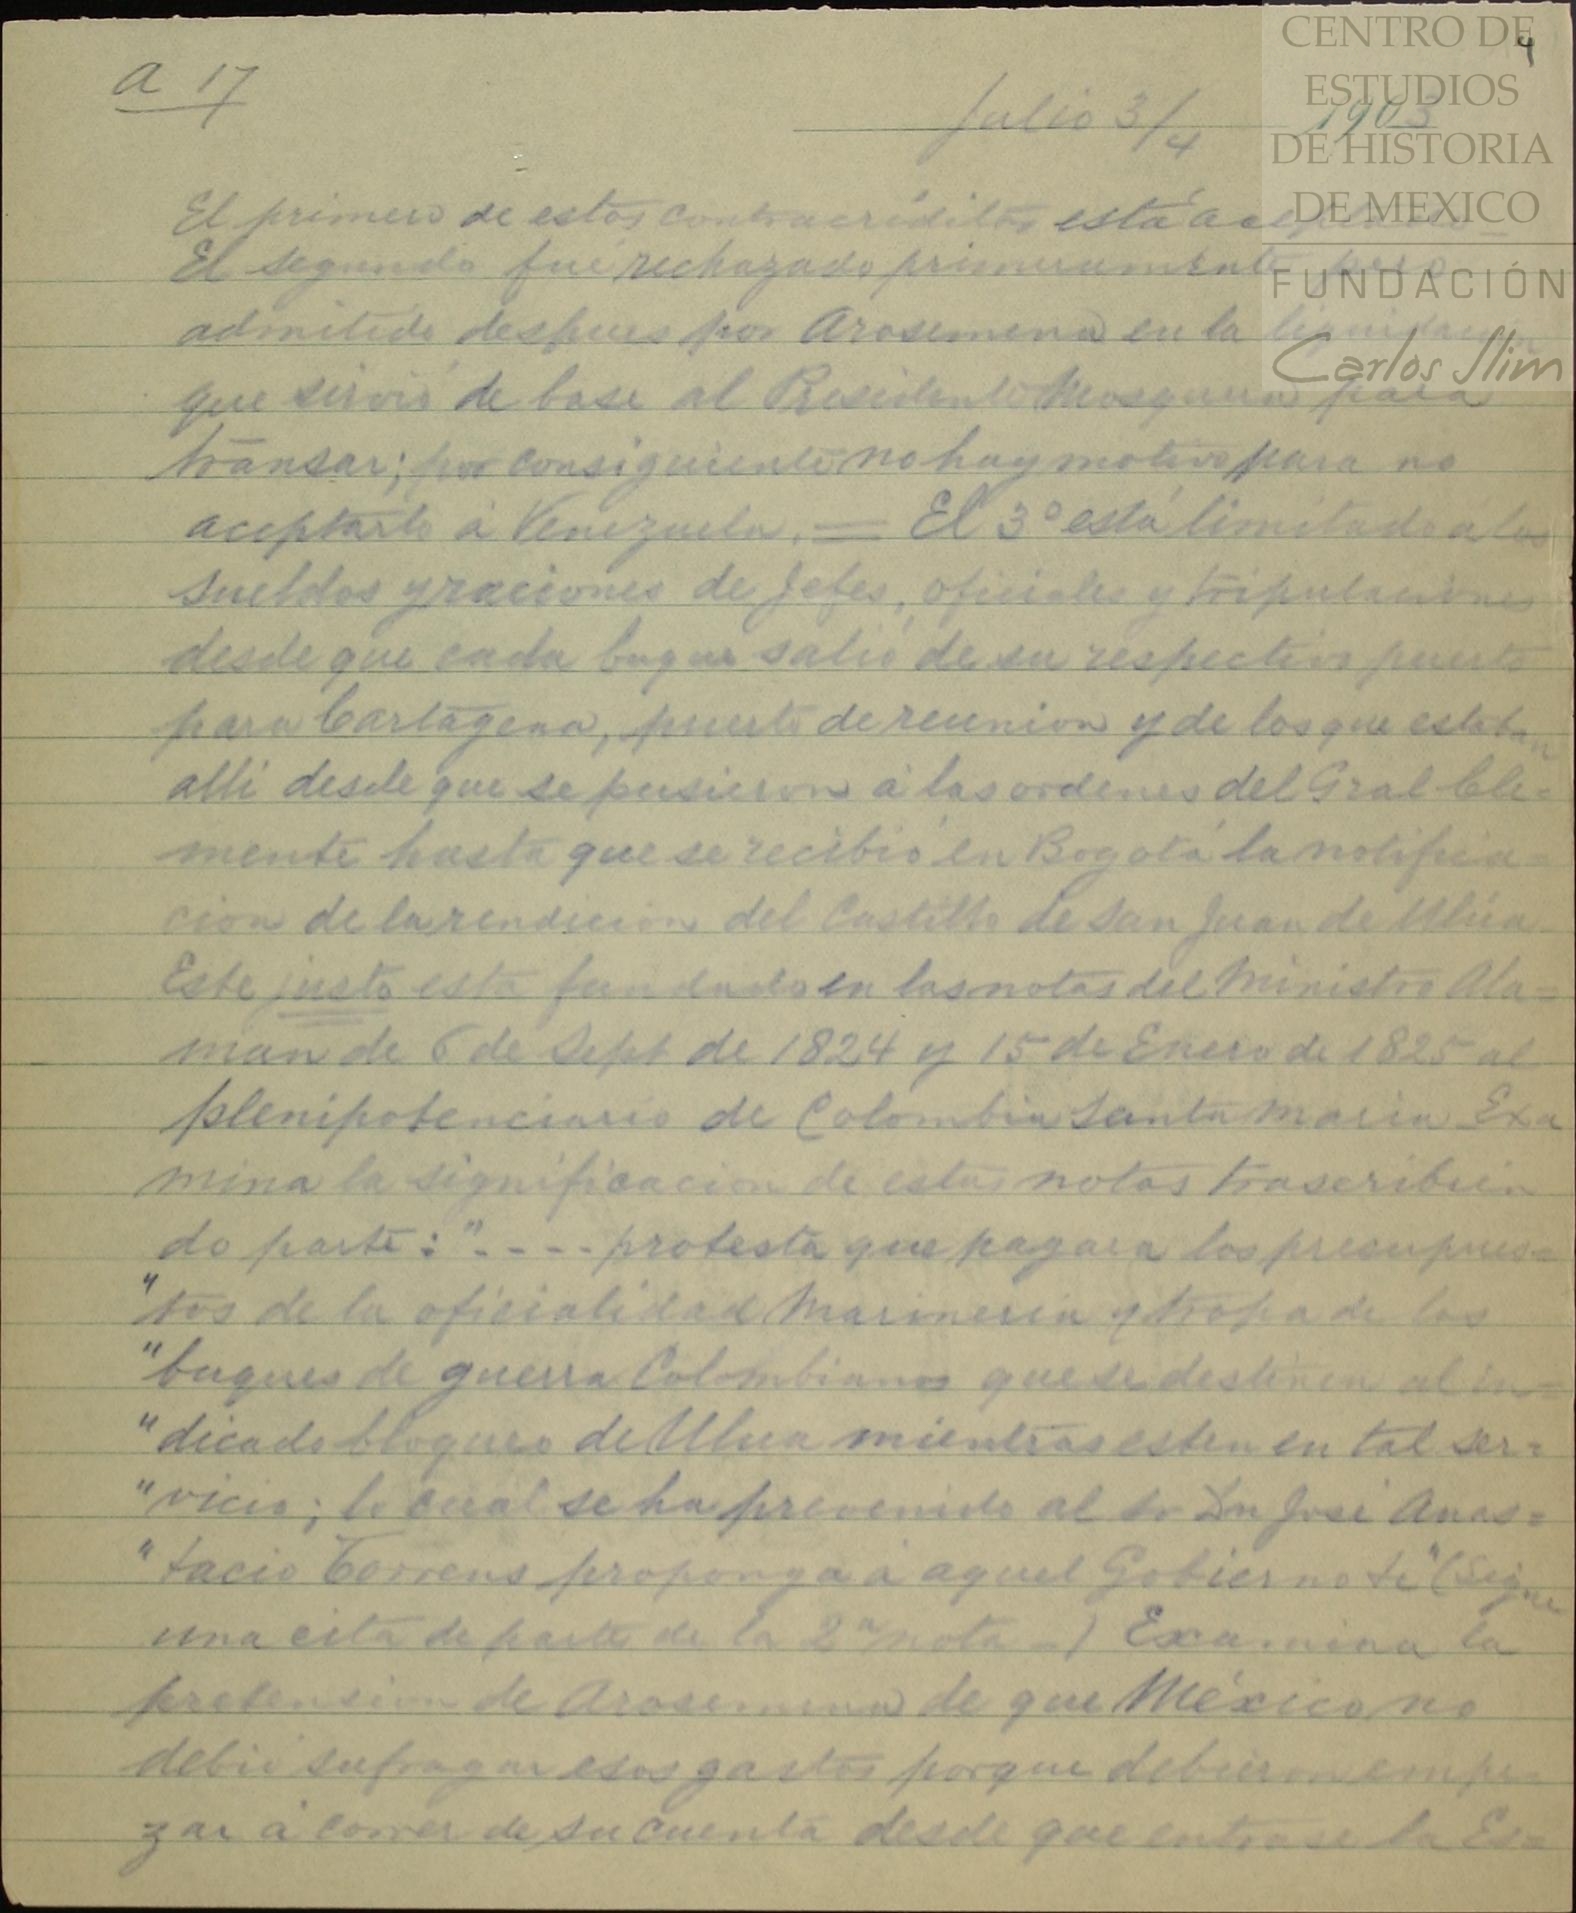 a 17
4
Julio 3/4 1903
CENTRO DE
ESTUDIOS
DE HISTORIA
DE MEXICO
FUNDACIÓN
Carlos Slim
El primero de estos contracréditos está aceptado
El segundo fué rechazado primeramente pero
admitido despues por Arosemena en la liquidacion
que sirvió de base al Presidente Mosquera para
transar; por consiguiente no hay motivo para no
aceptarlo á Venezuela. = El 3º está limitado a los
sueldos y raciones de Jefes, oficiales y tripulaciones
desde que cada buque salió de su respectivo puerto
para Cartagena, puerto de reunion y de los que estaban
alli desde que se pusieron á las ordenes del Gral Cle=
mente hasta que se recibió en Bogotá la notifica=
cion de la rendicion del Castillo de San Juan de Ulúa
Este justo esta fundado en las notas del Ministro Ala=
man de 6 de Sept de 1824 y 15 de Enero de 1825 al
plenipotenciario de Colombia Santa Maria Exa
mina la significacion de estas notas trascribien
do parte: ".---- protesta que pagara los presupues=
"tos de la oficialidad Marineria y tropa de los
"buques de guerra Colombianos que se destinen al in=
"dicado bloqueo de Ulua mientras esten en tal ser=
"vicio; lo cual se ha prevenido al Sr Dn José Anas=
"tacio Torrens proponga á aquel Gobierno &" (Sigue
una cita de parte de la 2ª nota -) Examina la
pretension de Arosemena de que México no
debió sufragar esos gastos porque debieron empe
zar á correr de su cuenta desde que entrase la Es=